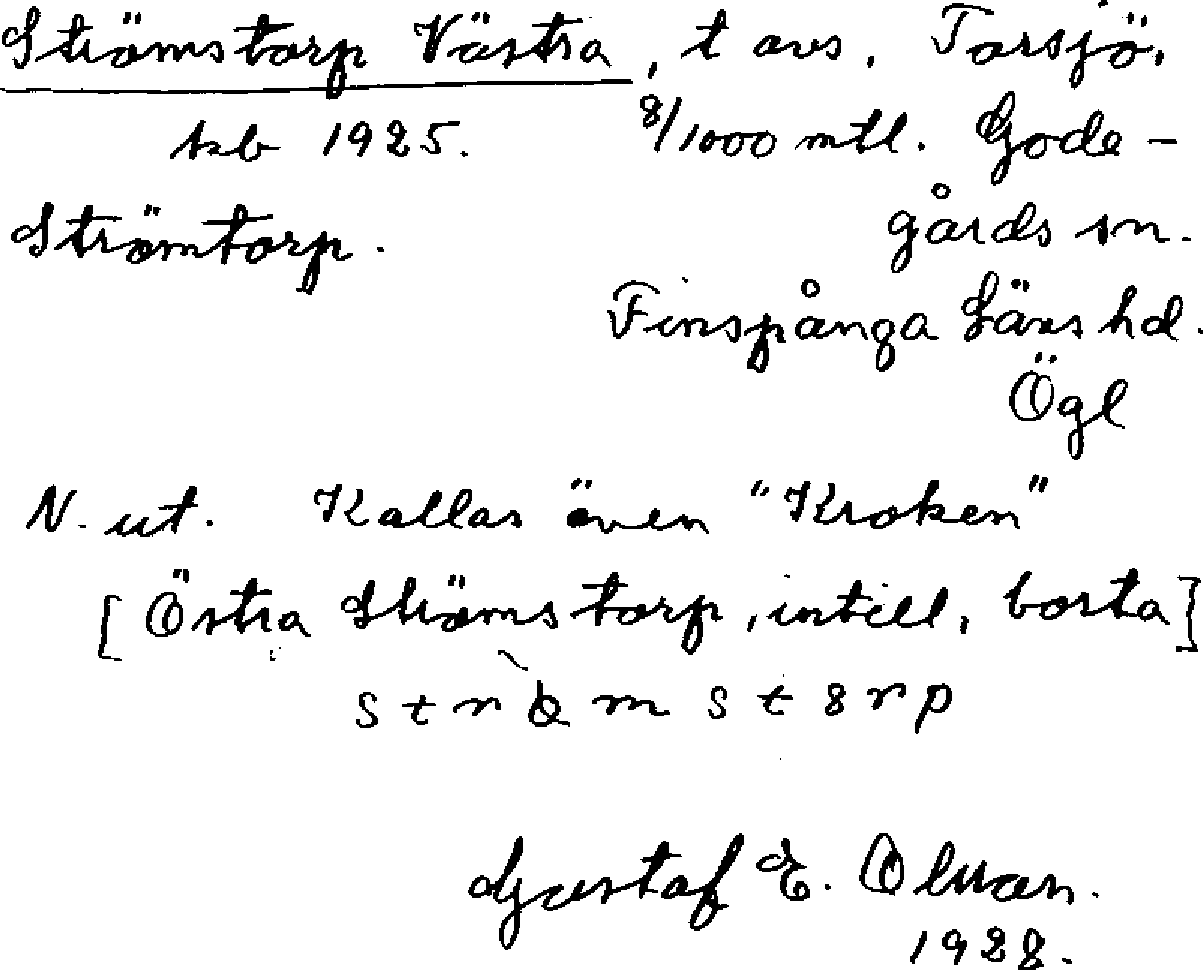 Strömstorp Västra, t avs. Torsjö.
tzb 1925. 8/1000 mtl. Gode-
Strömtorp. gårds sn.
Finspånga Läns hd.
Ögl
N. ut. Kallas även "Kroken"
[Östra Strömstorp, intill, borta]
Gustaf E.
1928.